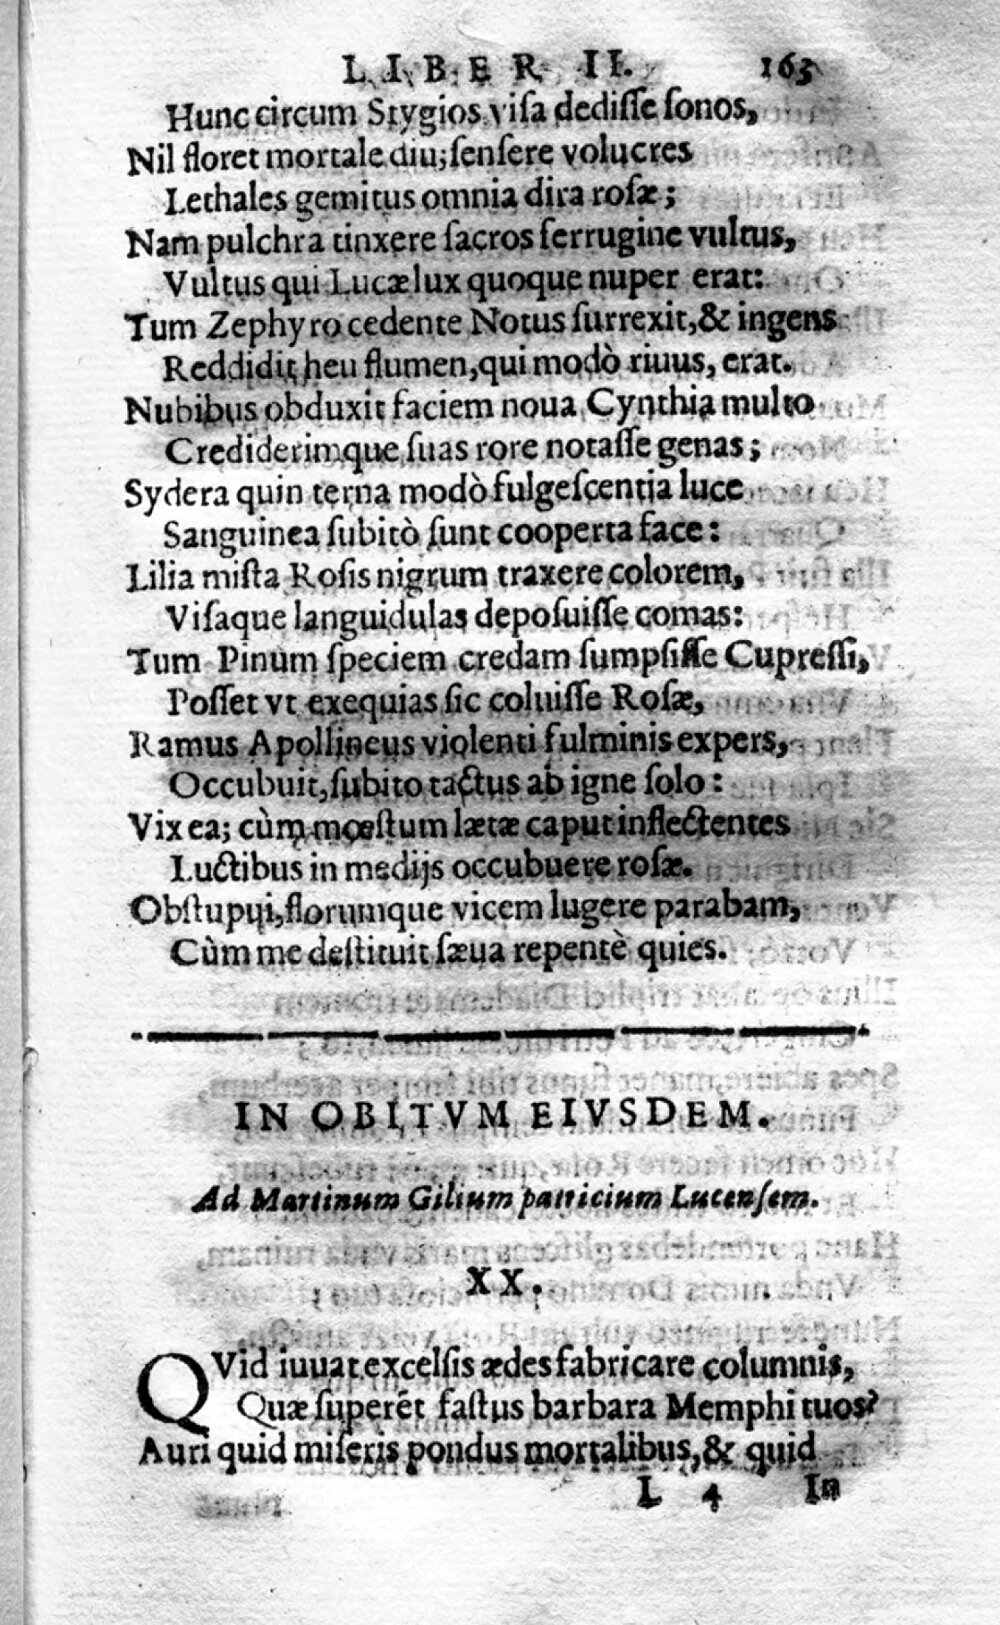 LIBER II. 163
Hunc circum Stygios visa dedisse sonos,
Nil floret mortale diu; sensere volucres
Lethales gemitus omnia dira rosæ;
Nam pulchra tinxere sacros ferrugine vultus,
Vultus qui Lucæ lux quoque nuper erat:
Tum Zephyro cedente Notus surrexit, & ingens
Reddidit heu flumen, qui modò riuus, erat.
Nubibus obduxit faciem noua Cynthia multo
Crediderimque suas rore notasse genas;
Sydera quin terna modò fulgescentia luce
Sanguinea subitò sunt cooperta face:
Lilia mista Rosis nigrum traxere colorem,
Visaque languidulas deposuisse comas:
Tum Pinum speciem credam sumpsisse Cupressi,
Posset vt exequias sic coluisse Rosæ,
Ramus Apollineus violenti fulminis expers,
Occubuit, subito tactus ab igne solo:
Vix ea; cùm mœstum lætæ caput inflectentes
Luctibus in medijs occubuere rosæ.
Obstupui, florumque vicem lugere parabam,
Cùm me destituit sæua repentè quies.
IN OBITVM EIVSDEM.
Ad Martinum Gilium patricium Lucensem.
XX.
QVid iuuat excelsis ædes fabricare columnis,
Quæ superēt fastus barbara Memphi tuos?
Auri quid miseris pondus mortalibus, & quid
L 4 In